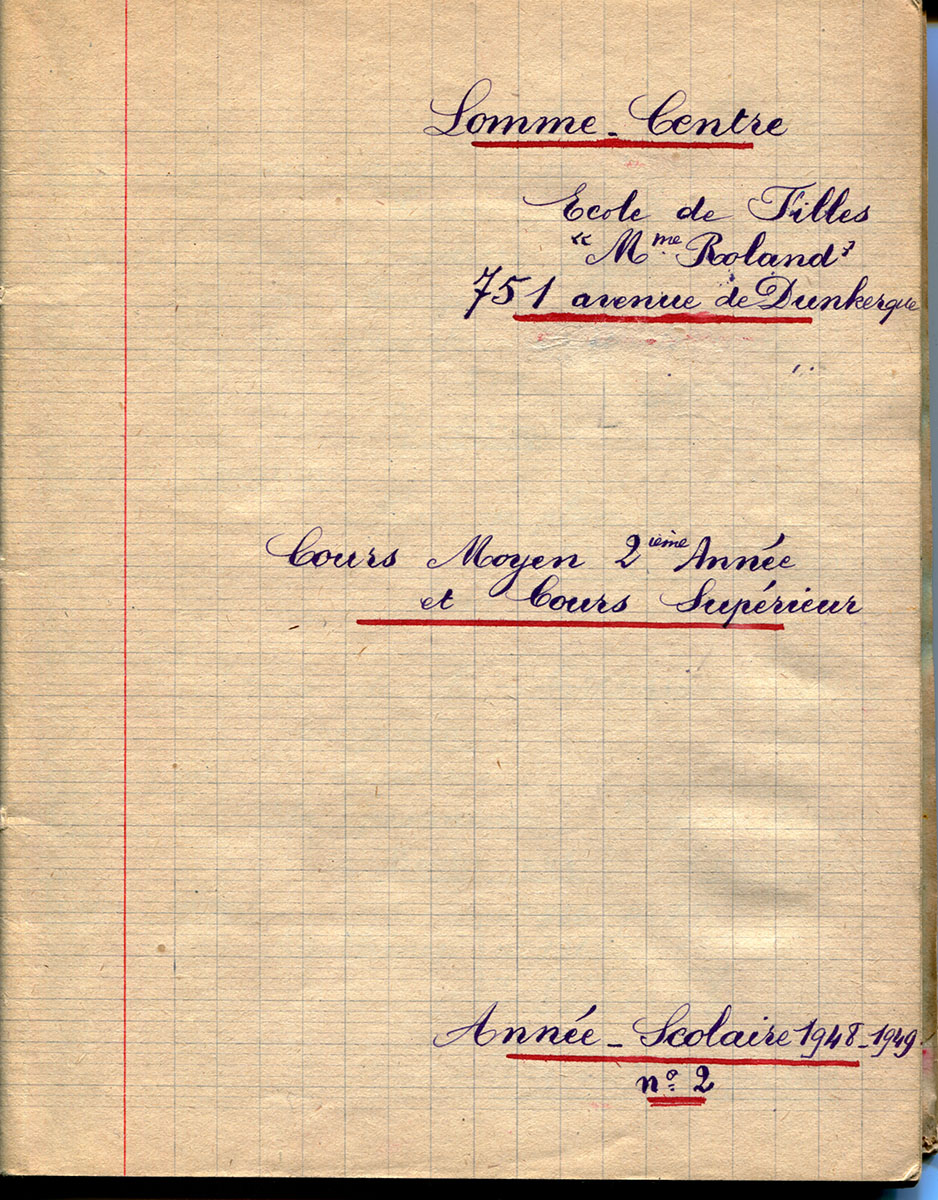 Lomme - Centre
Ecole de Filles
« Mme Roland »
751 avenue de Dunkerque
Cours Moyen 2ième Année
et Cours Supérieur
Année - Scolaire 1948-1949
nº 2